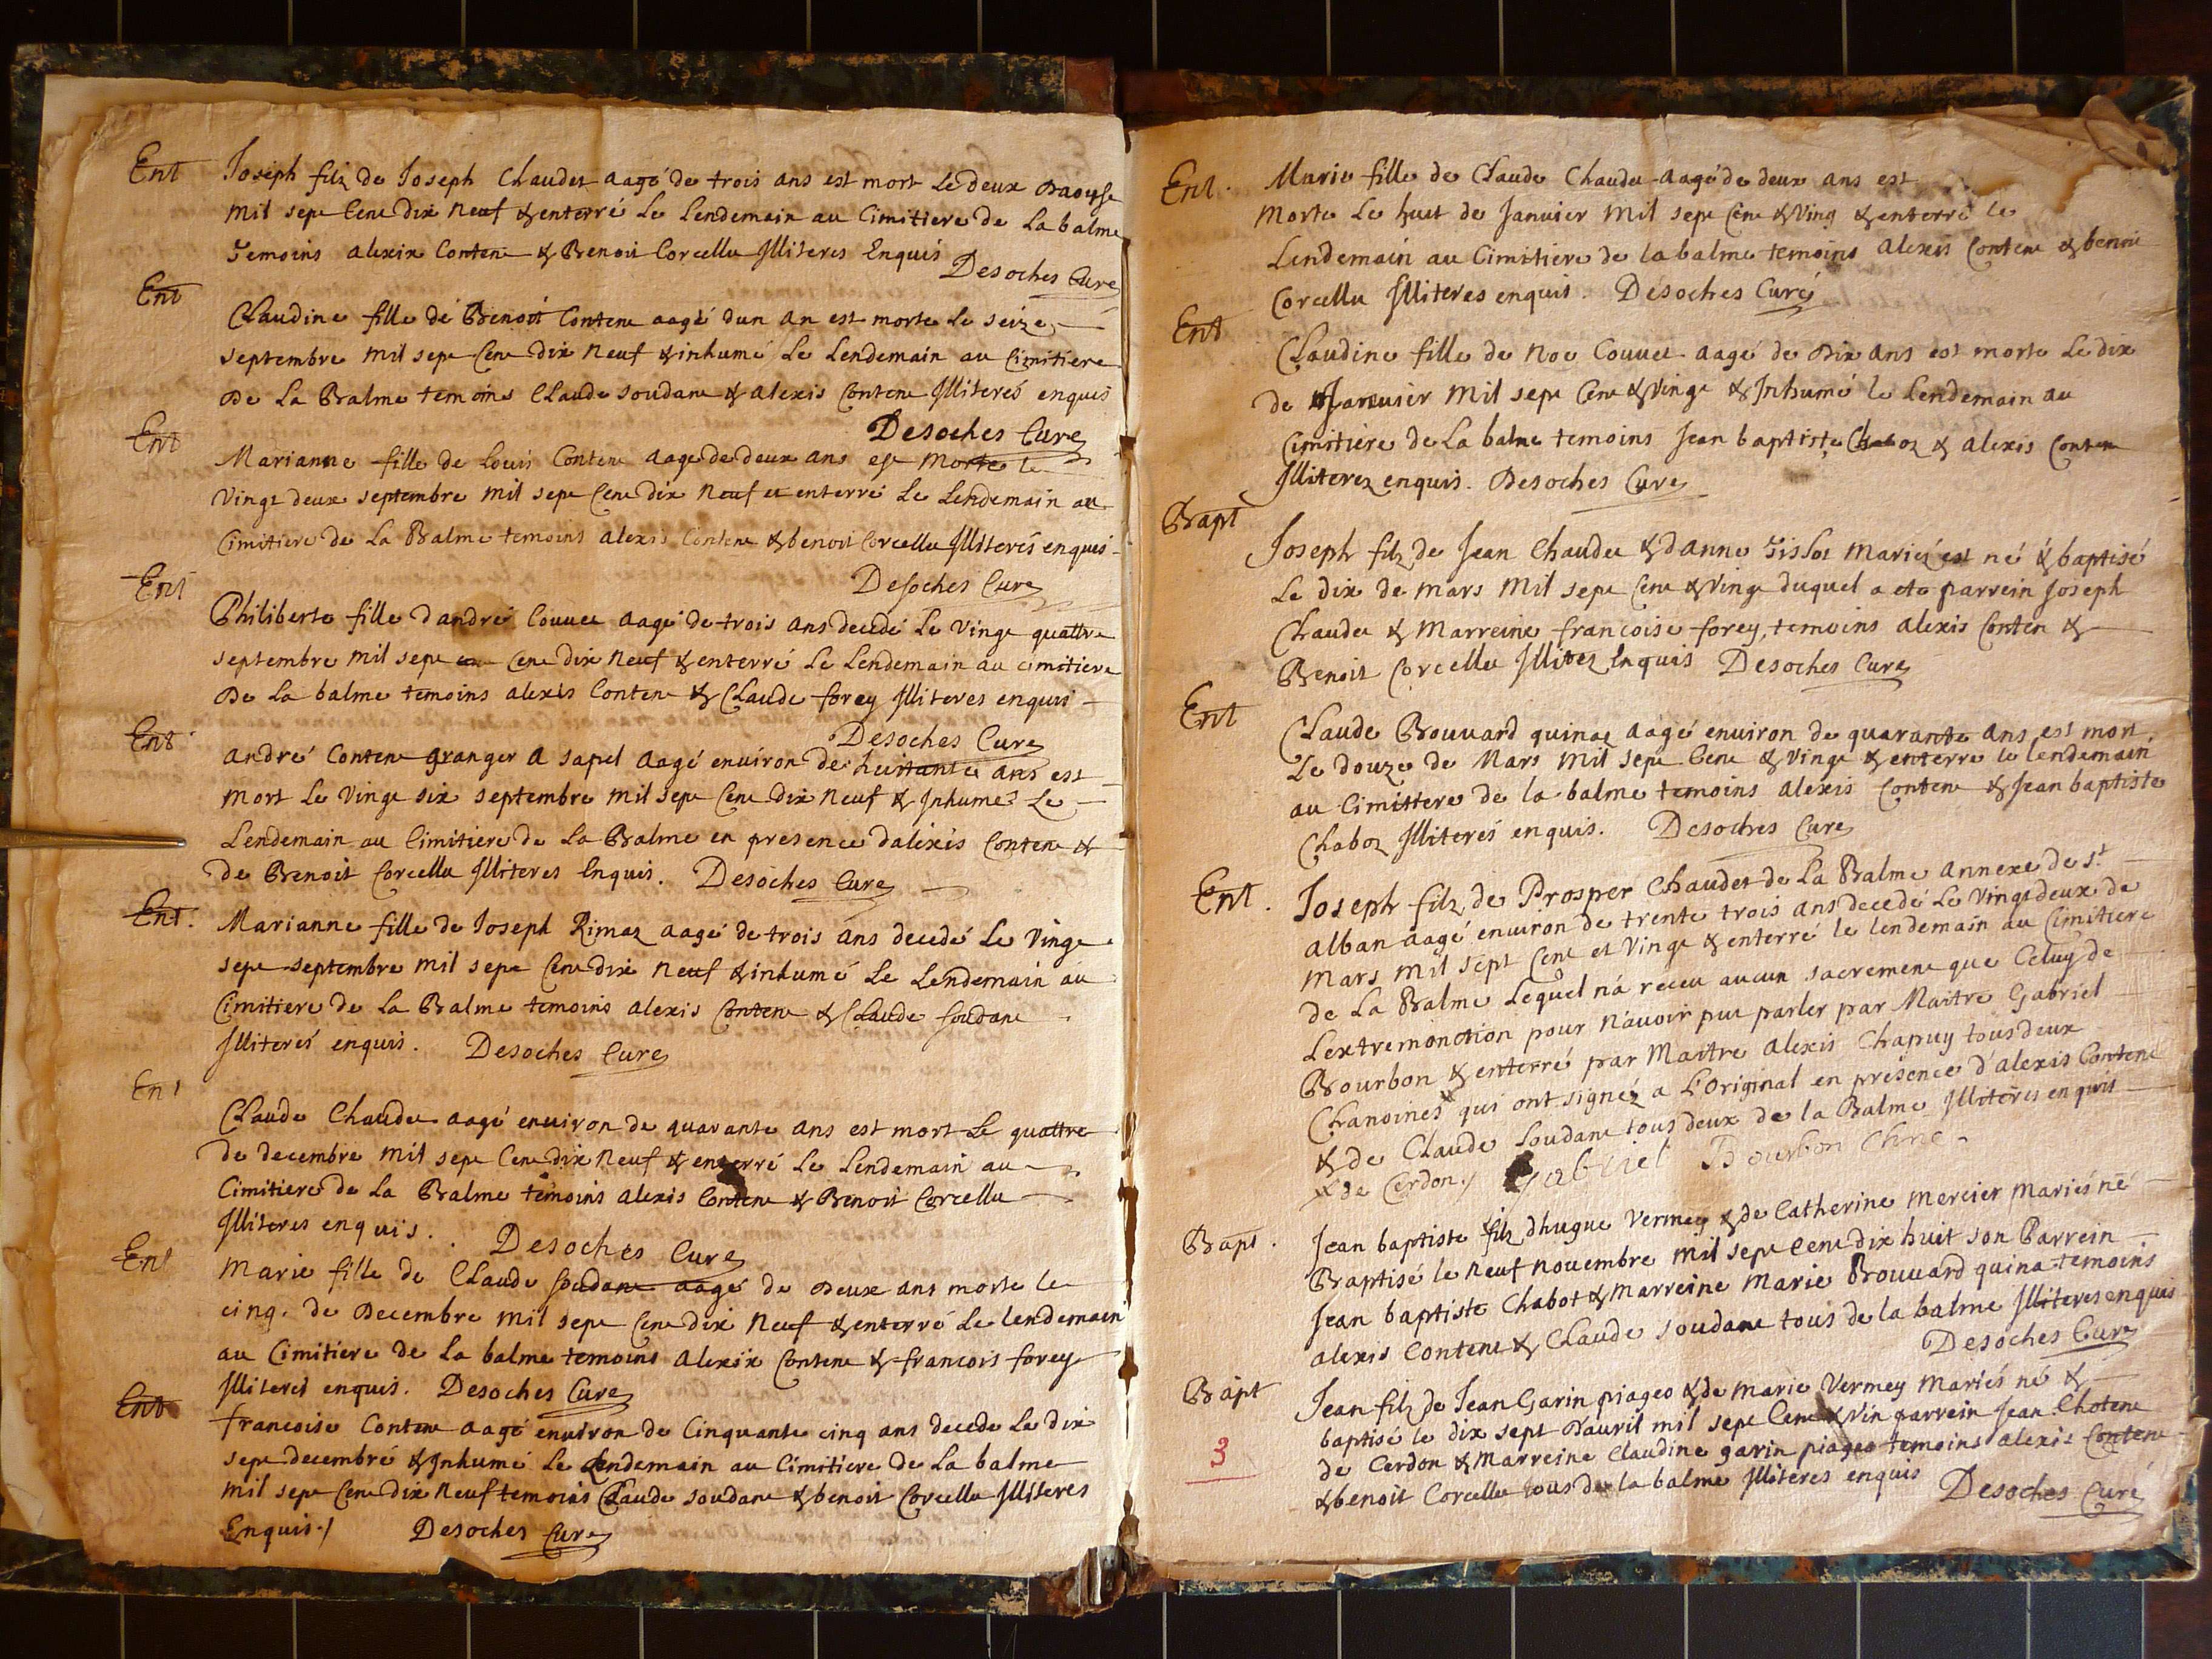 Ent Joseph filz de Joseph Chaudet aagé de trois ans est mort Le deux Daoust
mil sept Cent dix neuf & enterré Le Lendemain au Cimitiere de La balme
Temoins alexix Contene & Benoit Corcellu Illiteres Enquis
Desoches Curé
Ent Claudine fille de Benoit Contene aagé dun an est morte Le seize
septembre mil sept Cent dix neuf & inhumé Le Lendemain au Cimitiere
De La Balme temoins Claude soudane & alexis Contene Illiterés enquis
Desoches Curé
Ent Marianne fille de Louis Contene aagé de deux ans est morte le
vingt deux septembre mil sept Cent dix neuf et enterré Le Lendemain au
Cimitiere de La Balme temoins alexis Contene & benoit Corcellu Illiterés enquis
Desoches Curé
Ent Philiberte fille dandré Couuet aagé de trois ans decedé Le vingt quattre
septembre mil sept Cent dix neuf & enterré Le Lendemain au cimitiere
De La balme temoins alexis Contene & Claude forey Illiteres enquis
Desoches Curé
Ent andré Contene granger a sapel aagé enuiron de huittante ans est
mort Le vingt six septembre mil sept Cent dix neuf & Inhumé Le
Lendemain au Cimitiere de La Balme en presence dalexis Contene &
de Benoit Corcellu Illiteres Enquis. Desoches Curé
Ent. Marianne fille de Joseph Rimaz aagé de trois ans decedé Le vingt
sept septembre mil sept Cent dix neuf & inhumé Le Lendemain au
Cimitiere de La Balme temoins alexis Contene & Claude soudane
Illiterés enquis. Desoches Curé
Ent Claude Chaudet aagé enuiron de quarante ans est mort Le quattre
de decembre mil sept Cent dix neuf & enterré Le Lendemain au
Cimitiere de La Balme temoins alexis Contene & Benoit Corcellu
Illiteres enquis. Desoches Curé
Ent Marie fille de Claude soudane aagé de Deux ans morte le
cinq. de Decembre mil sept Cent dix neuf & enterré Le lendemain
au Cimitiere de La balme temoins alexix Contene & francois forey
Illiteres enquis. Desoches Curé
Ent francoise Contene aagé enuiron de Cinquante cinq ans decedé Le dix
sept decembre & Inhumé Le Lendemain au Cimitiere de La balme
mil sept Cent dix neuf temoins Claude soudane & benoit Corcellu Illiteres
Enquis./ Desoches Curé
Ent. Marie fille de Claude Chaudet aagé de deux ans est
morte Le huit de Januier mil sept Cent & Ving & enterré le
Lendemain au Cimitiere de la balme temoins alexis Contene & benoit
Corcellu Illiteres enquis. Desoches Curé
Ent Claudine fille de noe Couuet aagé de dix ans est morte Le dix
de Januier mil sept Cent & vingt & Inhumé le Lendemain au
Cimitiere de La balme temoins Jean baptiste Chaboz & alexis Contene
Illiterez enquis. Desoches Curé
Bapt Joseph filz de Jean Chaudet & danne Tissot mariéz est né & baptisé
Le dix de mars mil sept Cent & vingt duquel a eté parrein Joseph
Chaudet & marreine francoise forey, temoins alexis Conten &
Benoit Corcellu Enquis Desoches Curé
Ent Claude Brouuard quinaz aagé enuiron de quarante ans est mort
Le douze de Mars mil sept Cent & vingt & enterré le lendemain
au Cimittere de la balme temoins alexis Contene & Jean baptiste
Chaboz Illiterés enquis. Desoches Curé
Ent. Joseph filz de Prosper Chaudet de La Balme annexe de st
alban aagé enuiron de trente trois ans decedé Le vingt deux de
mars mil sept Cent et vingt & enterré le lendemain au Cimitiere
de La Balme Lequel n'a receu aucun sacrement que Celuy de
Lextremonction pour n'auoir put parler par Maitre Gabriel
Bourbon & enterré par Maitre alexis Chapuy tous deux
Chanoines qui ont signéz a L'Original en presence d'alexis Contene
& de Claude soudane tous deux de la Balme Illiteres enquis
de Cerdon./ Gabriel Bourbon Chne
Bapt. Jean baptiste filz dhugue vermey & de Catherine mercier mariés né
Baptisé le neuf nouembre mil sept Cent dix huit son Parrein
Jean baptiste Chabot & marreine Marie Brouuard quina temoins
alexis Contene & Claude soudane tous de la balme Illiteres enquis
Desoches Curé
Bapt Jean filz de Jean Garin piageo & de marie vermey mariés né &
baptisé le dix sept Dauril mil sept Cent & vin parrein Jean Chotene
de Cerdon & Marreine Claudine garin piageo temoins alexis Contene
& benoit Corcellu tous de la balme Illiteres enquis
Desoches Curé
3